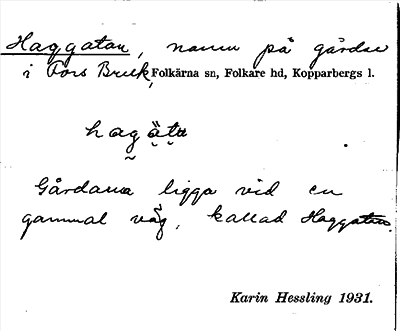 Haggatan, namn på gårdar
i Fors Bruk, Folkärna sn, Folkare hd, Kopparbergs l.
hagata
Gårdarna ligga vid en
gammal väg, kallad Haggatan.
Karin Hessling 1931.